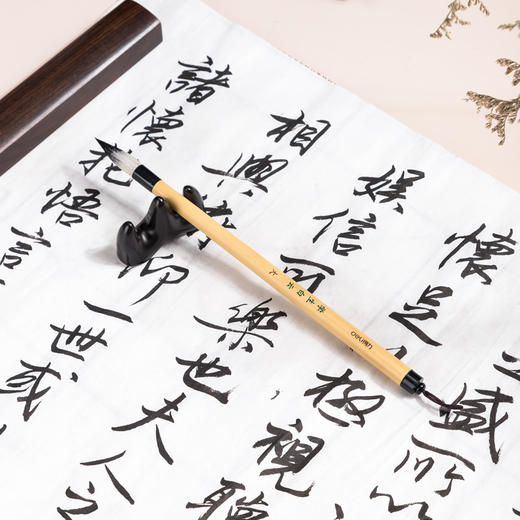 之盛所以
懷足以極視聽
娱信可樂也夫人之
相與俯仰一世或
諸懷抱悟言
学生白云 大
deli得力